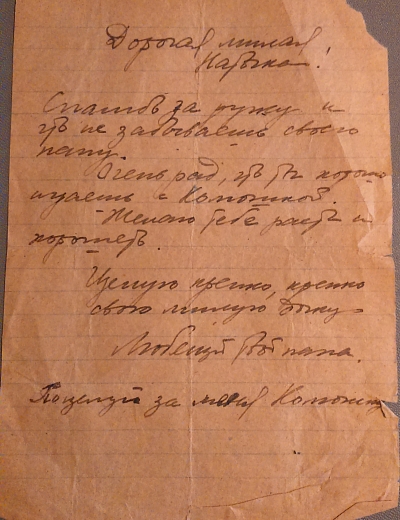 Дорогая милая
Наточка!
Спасибо за ручку и
что не забываешь своего
папу.
Очень рад, что ты хорошо
играешь с Колюшкой.
Желаю тебе расти и
хорошеть.
Целую крепко, крепко
свою милую дочку
Любящий твой папа.
Поцелуй за меня Колюшку